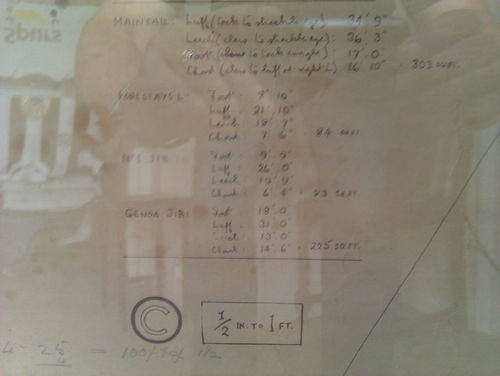 MAINSAIL: Luff (tack to shackle eye) 34' 9"
Leech (clew to shackle eye): 36' 3"
Foot (clew to tack cringle): 17' 0"
Chord (clew to luff at right L) 16' 10" = 303 SQ FT.
FORESTAYS'L: Foot: 8' 10"
Luff: 21' 10"
Leech: 18' 7"
Chord: 7' 6" = 84 SQ FT.
Nº1 JIB: Foot: 9' 9"
Luff: 26' 0"
Leech: 19' 9"
Chord: 6' 4" = 83 SQ FT.
GENOA JIB: Foot: 18' 0"
Luff: 31' 0"
13' 0"
Chord: 14' 6" = 225 SQ FT.
C
1/2 IN. TO 1 FT.